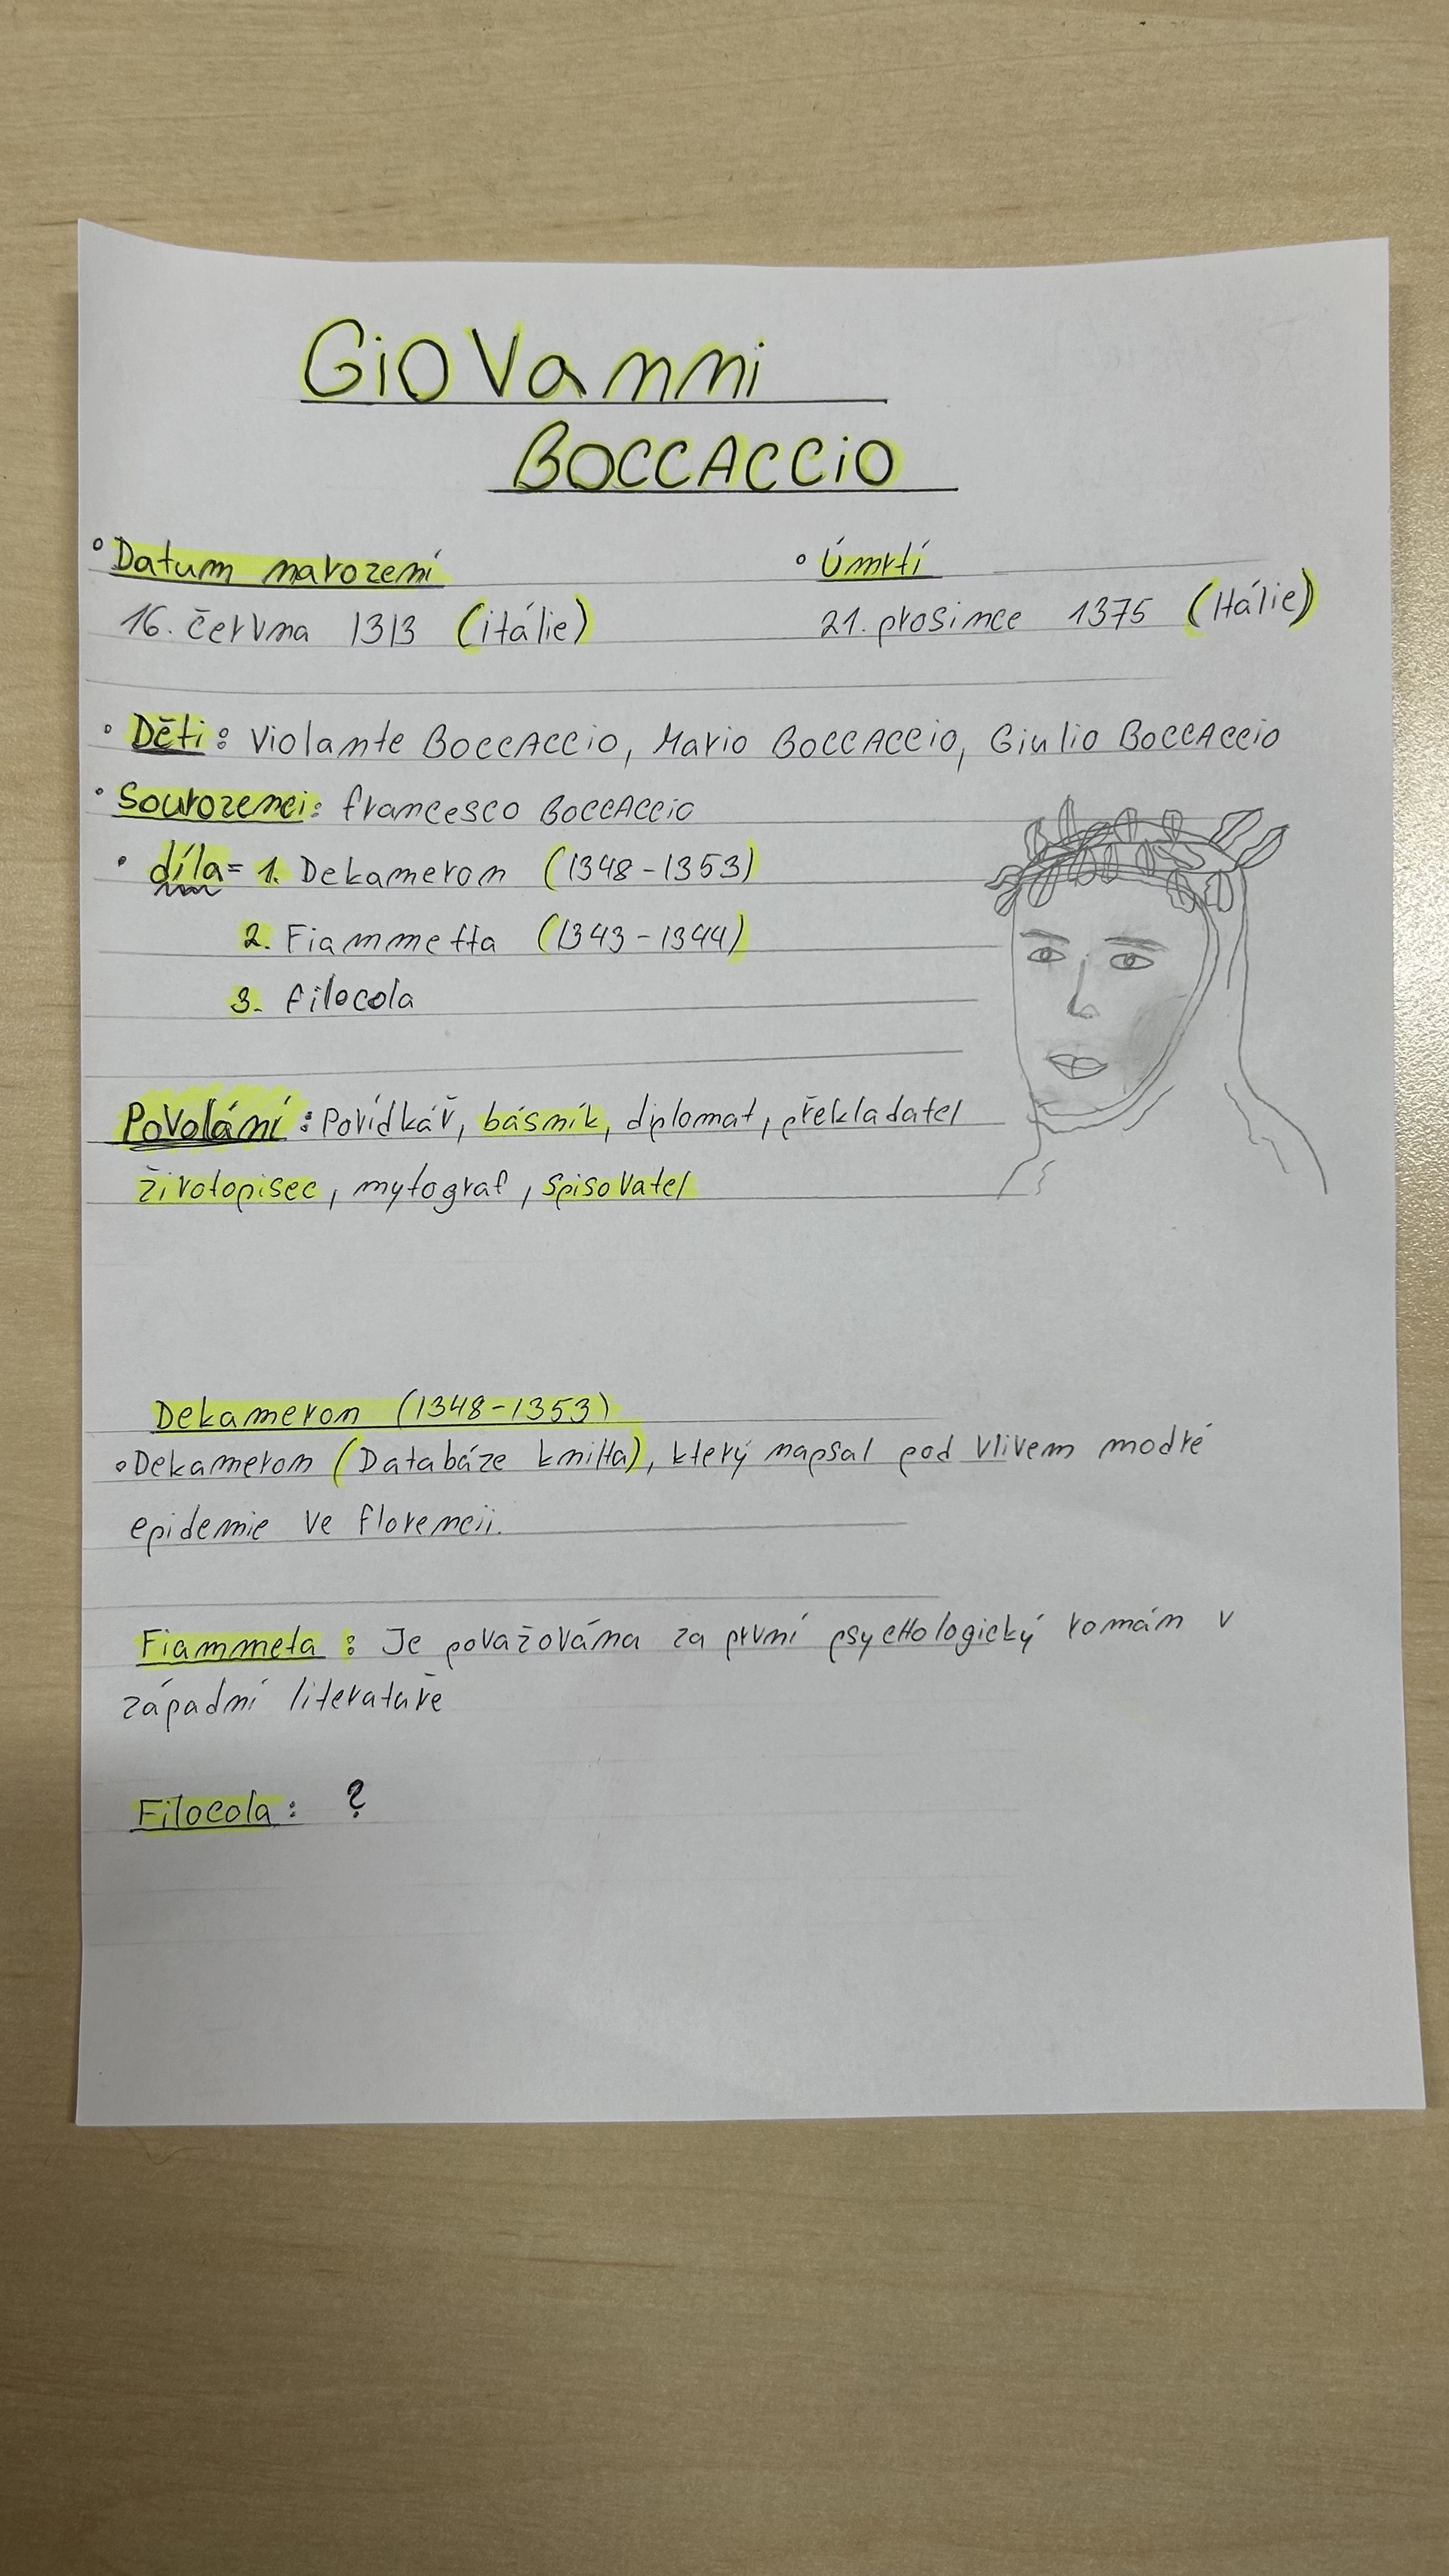 GiOVanni
BOCCACCiO
° Datum narození
° Úmrtí
16. června 1313 (itálie)
21. prosince 1375 (Itálie)
° Děti: Violante BOCCACCIO, Mario BOCCACCIO, Giulio BOCCACCIO
° Sourozenci: francesco BOCCACCIO
• díla= 1. Dekameron (1348-1353)
2. Fiammetta (1343-1344)
3. filocola
Povolání: Povídkář, básník, diplomat, překladatel
životopisec, mytograf, spisovatel
Dekameron (1348-1353)
° Dekameron (Databáze kniHa), který napsal pod vlivem modré
epidemie ve florencii.
Fiammeta: Je považována za první psycHologický román v
západní literatuře
Filocola: ?